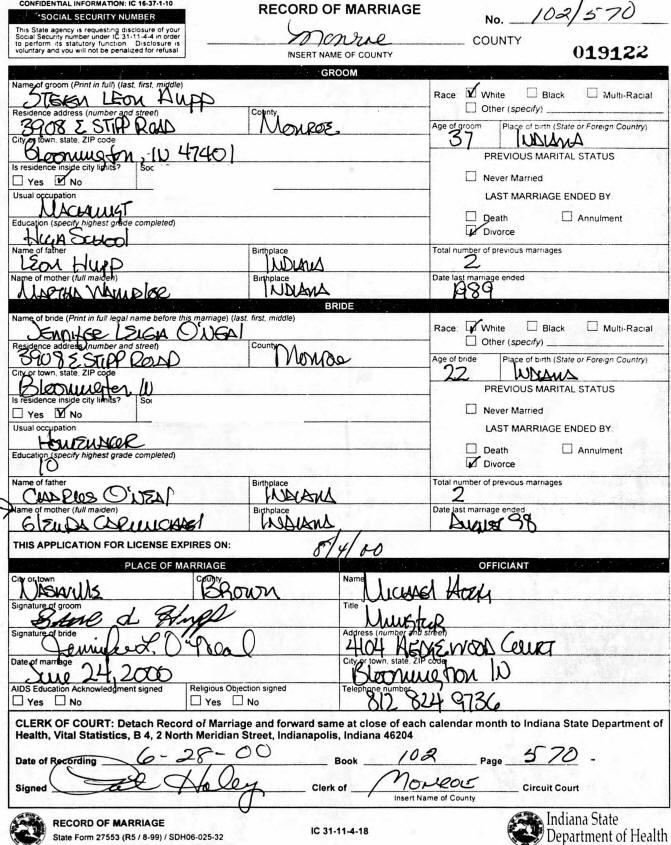 CONFIDENTIAL INFORMATION: IC 16-37-1-10
*SOCIAL SECURITY NUMBER
This State agency is requesting disclosure of your
Social Security number under IC 31-11-4-4 in order
to perform its statutory function. Disclosure is
voluntary and you will not be penalized for refusal.
RECORD OF MARRIAGE
Monroe COUNTY
INSERT NAME OF COUNTY
No. 102/570
019122
GROOM
Name of groom (Print in full) (last, first, middle)
STEVEN LEON HUPP
Race: White Black Multi-Racial
Other (specify)
Residence address (number and street) County
3908 E STIPP ROAD MONROE
Age of groom Place of birth (State or Foreign Country)
37 INDIANA
City or town, state, ZIP code
Bloomington, IN 47401
PREVIOUS MARITAL STATUS
Is residence inside city limits? Soc
Yes No
Never Married
LAST MARRIAGE ENDED BY
Usual occupation
MACHINIST
Death Annulment
Divorce
Education (specify highest grade completed)
HIGH SCHOOL
Name of father Birthplace
LEON HUPP INDIANA
Total number of previous marriages
2
Name of mother (full maiden) Birthplace
MARTHA INDIANA
Date last marriage ended
1989
BRIDE
Name of bride (Print in full legal name before this marriage) (last, first, middle)
JENNIFER LEIGH O'NEAL
Race: White Black Multi-Racial
Other (specify)
Residence address (number and street) County
3908 E STIPP ROAD Monroe
Age of bride Place of birth (State or Foreign Country)
22 INDIANA
City or town, state, ZIP code
Bloomington IN
PREVIOUS MARITAL STATUS
Is residence inside city limits? Soc
Yes No
Never Married
LAST MARRIAGE ENDED BY:
Usual occupation
HOMEMAKER
Death Annulment
Divorce
Education (specify highest grade completed)
10
Name of father Birthplace
CHARLES O'NEAL INDIANA
Total number of previous marriages
2
Name of mother (full maiden) Birthplace
GLENDA CARMICHAEL INDIANA
Date last marriage ended
August 98
THIS APPLICATION FOR LICENSE EXPIRES ON: 8/4/00
PLACE OF MARRIAGE
City or town County
NASHVILLE BROWN
Signature of groom
Signature of bride
Jennifer L. O'Neal
Date of marriage
June 24, 2000
AIDS Education Acknowledgment signed Religious Objection signed
Yes No Yes No
OFFICIANT
Name
MICHAEL
Title
Minister
Address (number and street)
4104 HEDGEWOOD COURT
City or town, state, ZIP code
Bloomington IN
Telephone number
812 824 9736
CLERK OF COURT: Detach Record of Marriage and forward same at close of each calendar month to Indiana State Department of
Health, Vital Statistics, B 4, 2 North Meridian Street, Indianapolis, Indiana 46204
Date of Recording 6-28-00 Book 102 Page 570
Signed Haley Clerk of MONROE Circuit Court
Insert Name of County
RECORD OF MARRIAGE
State Form 27553 (R5 / 8-99) / SDH06-025-32
IC 31-11-4-18
Indiana State
Department of Health